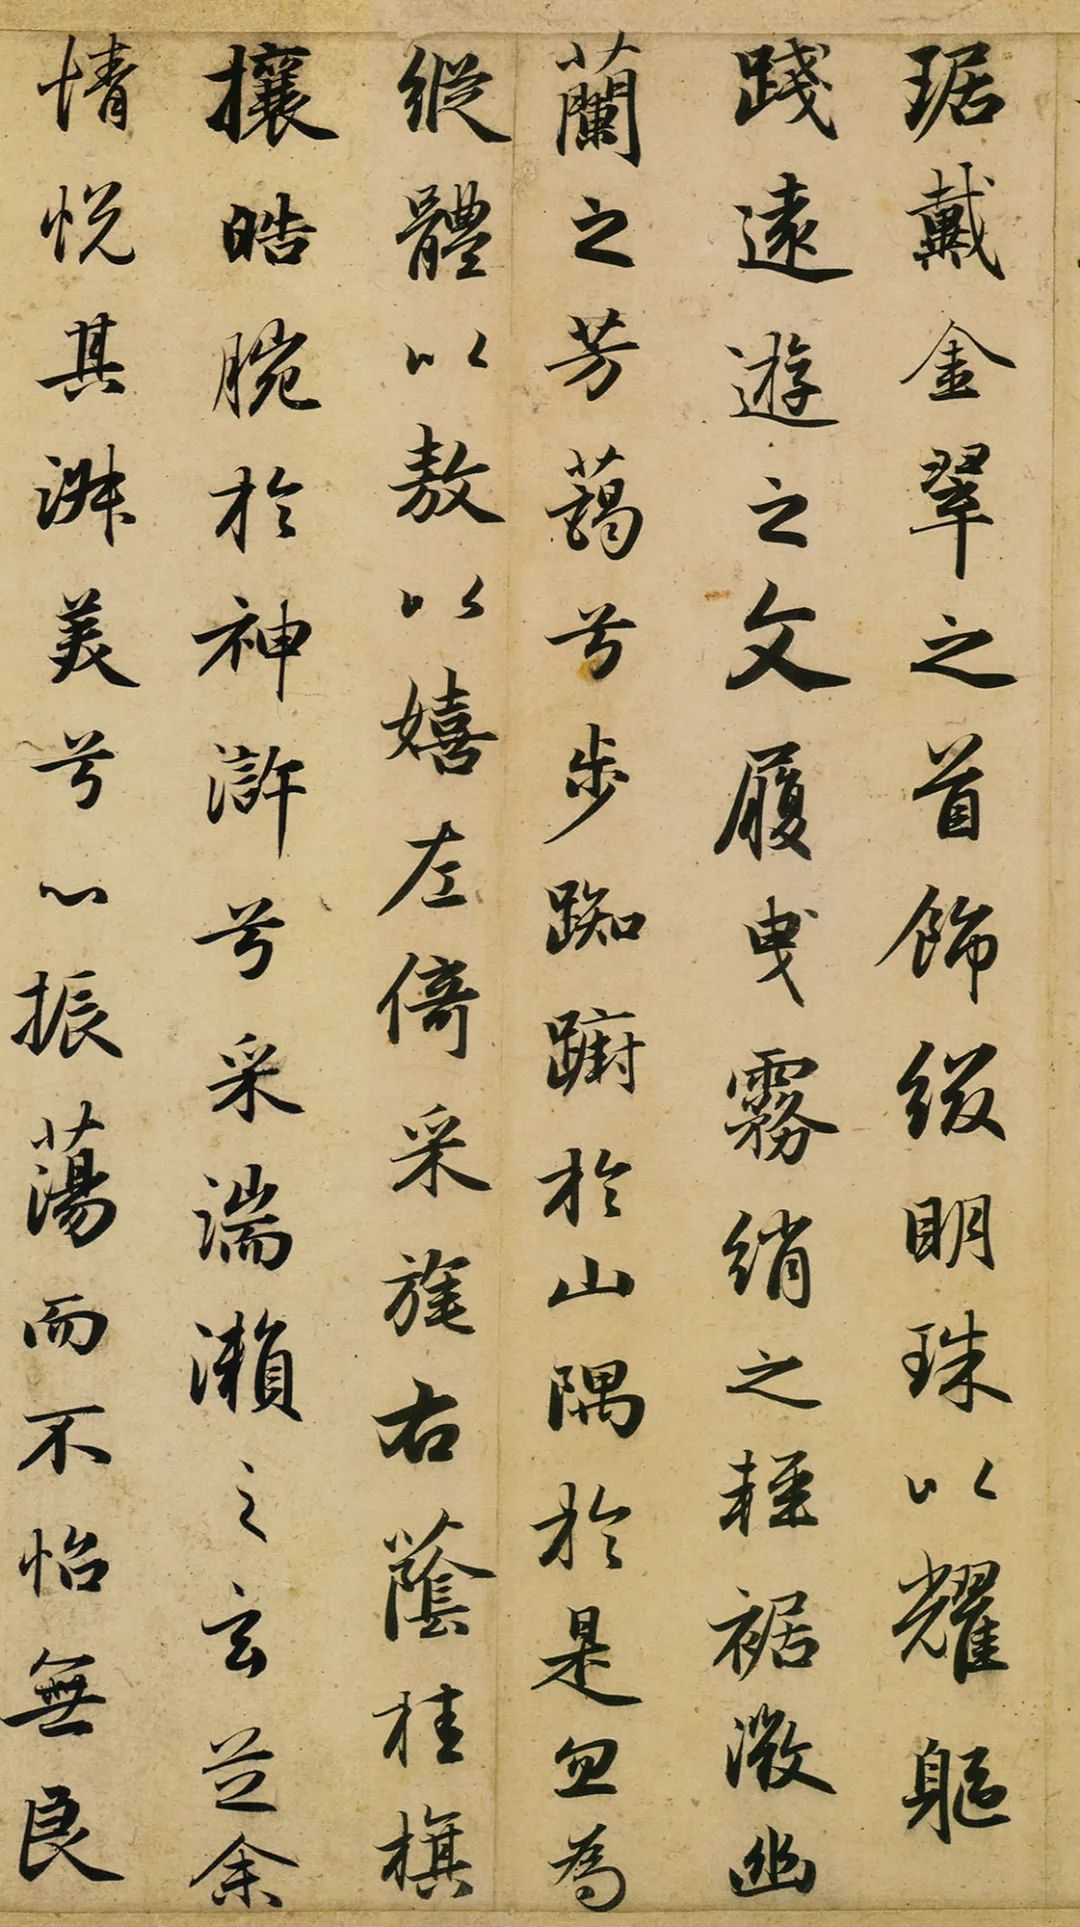 琚戴金翠之首飾綴明珠以耀軀
踐遠遊之文履曳霧綃之輕裾微幽
蘭之芳藹兮步踟躕於山隅於是忽為
縱體以敖以嬉左倚采旄右蔭桂旗
攘皓腕於神滸兮采湍瀨之玄芝余
情悅其淑美兮心振蕩而不怡無良